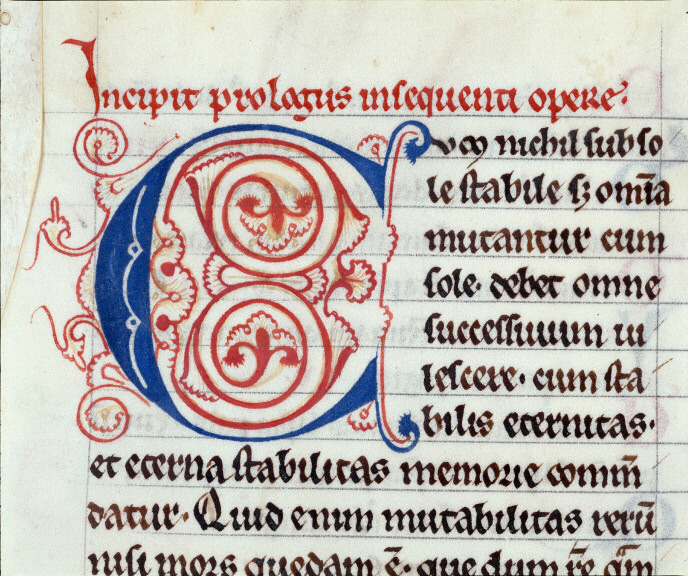 Incipit prologus in sequenti opere.
Cum nichil sub so
le stabile sꝫ om̅ia
mutantur cum
sole. debet omne
successiuum ui
lescere. cum sta
bilis eternitas.
et eterna stabilitas memorie com̅
datur. Quid enim mutabilitas reru̅
nisi mors quedam e̅. que dum